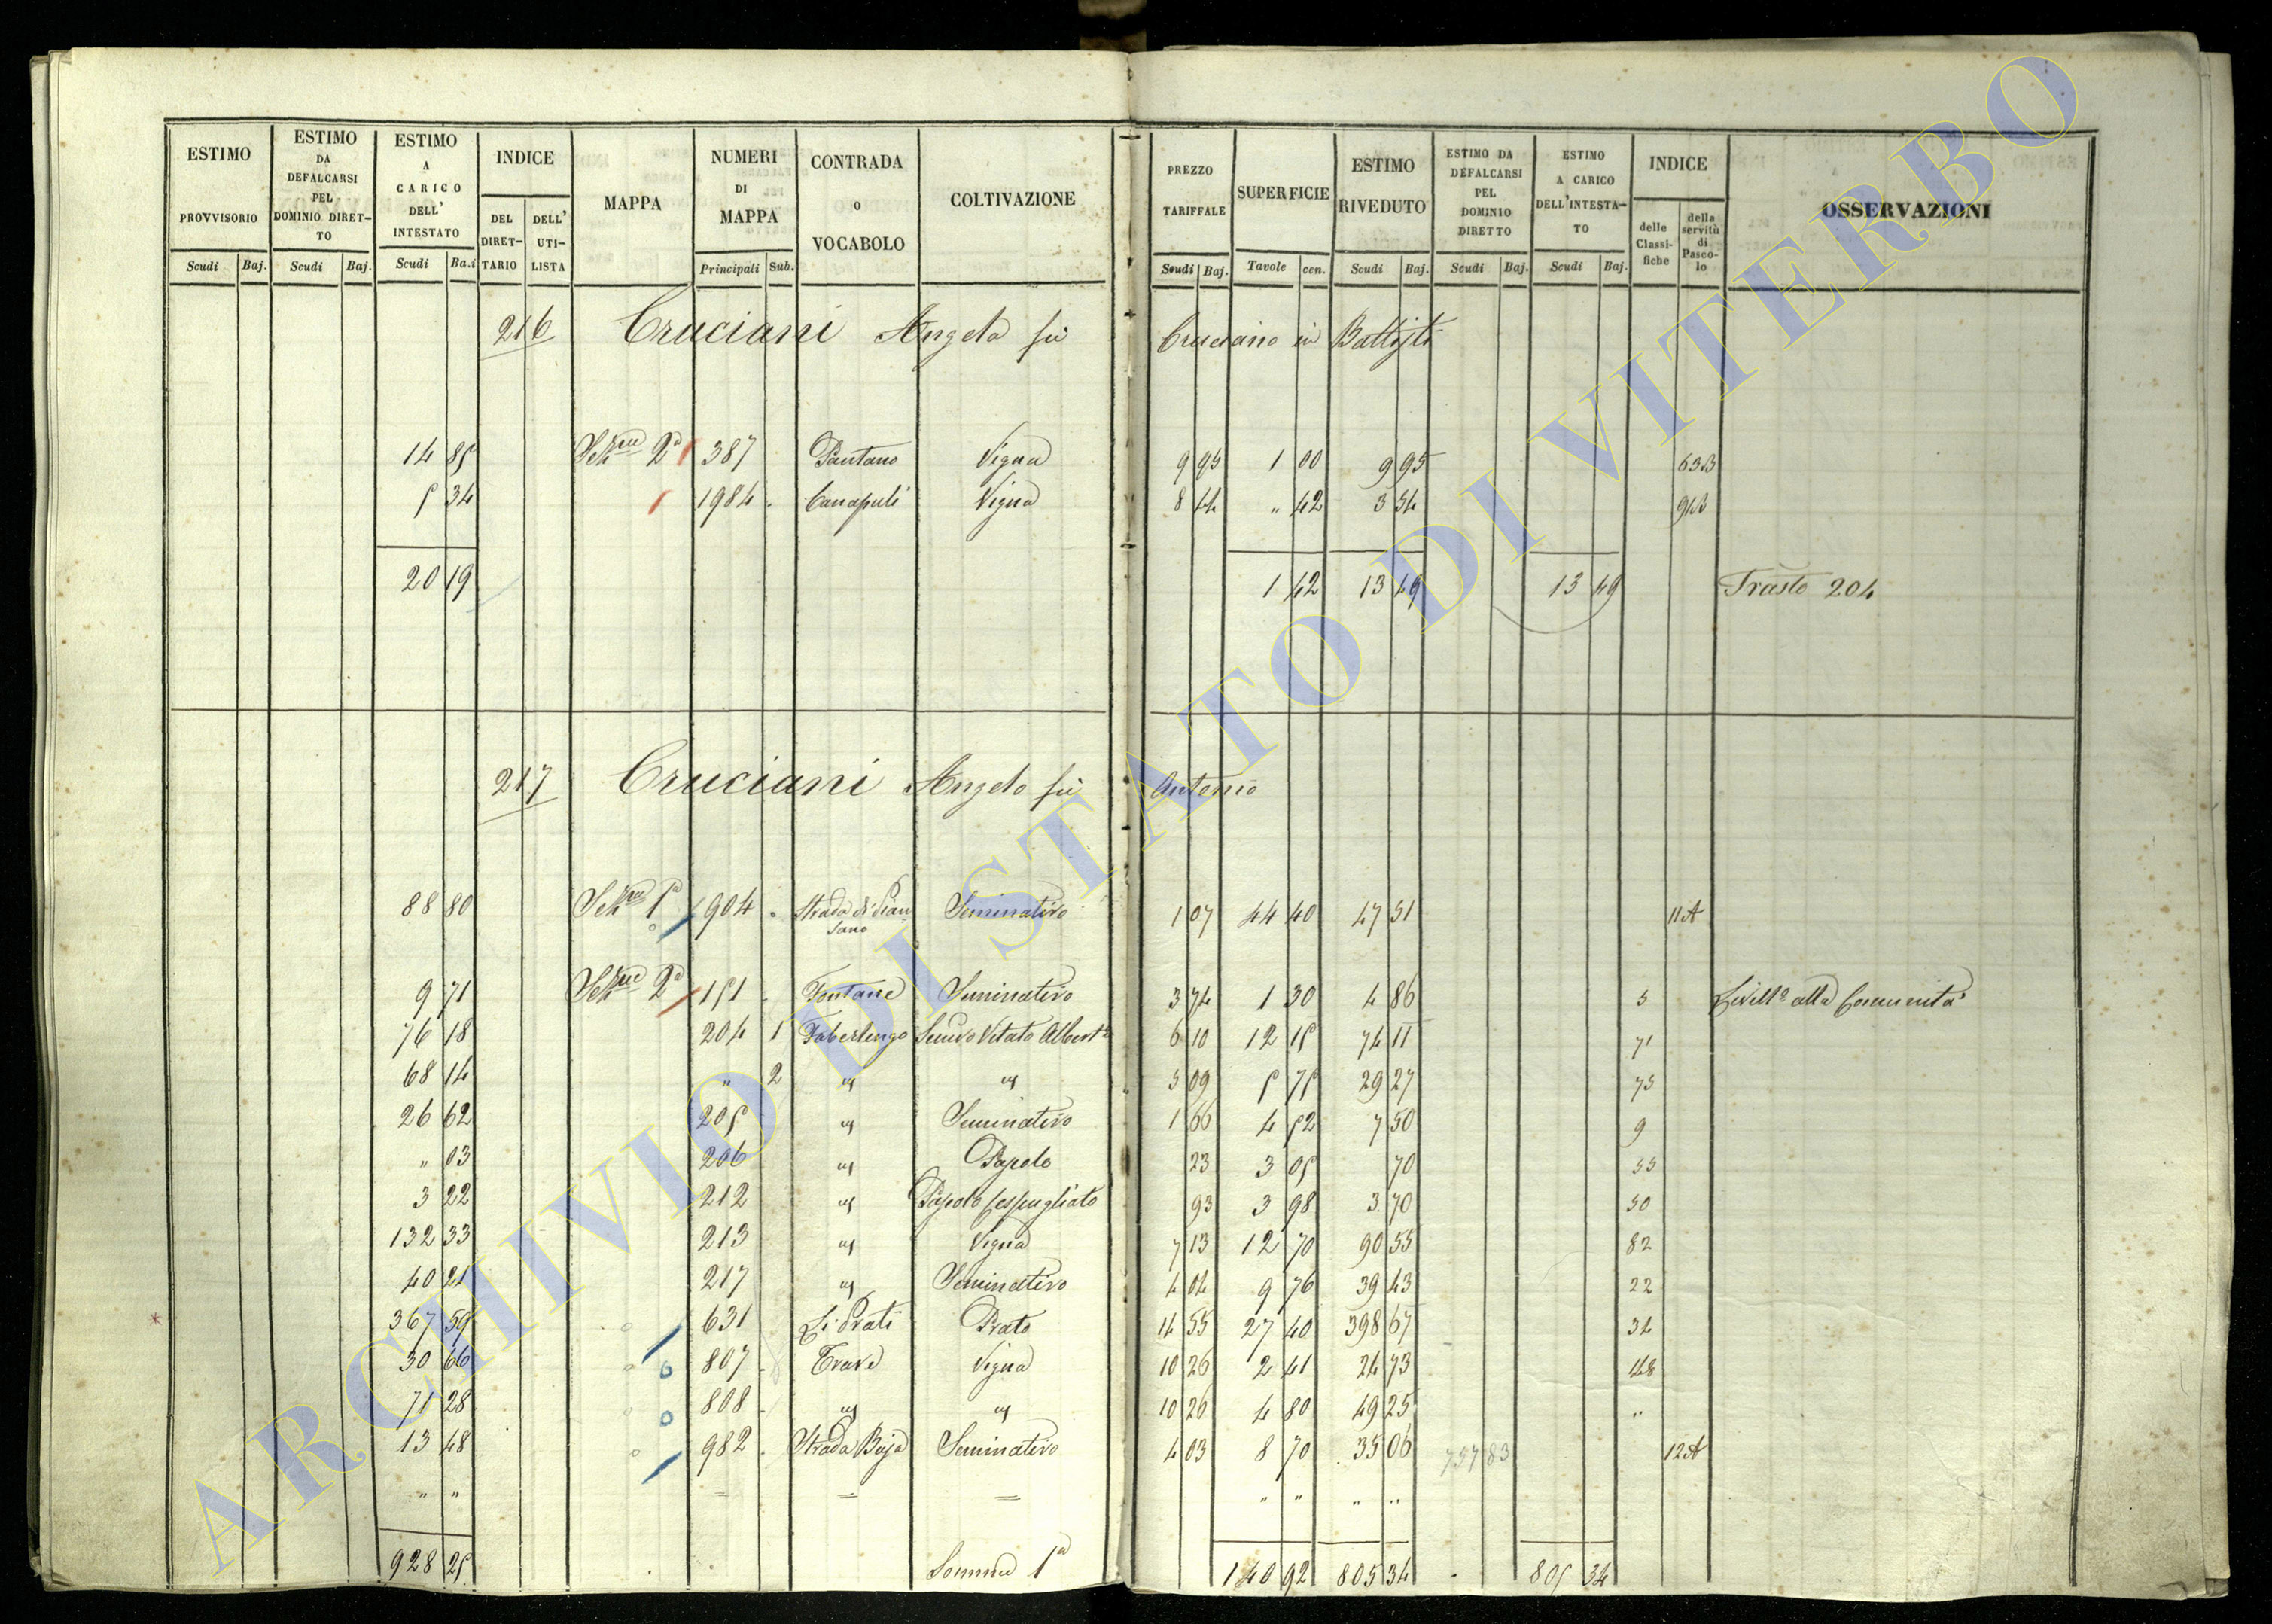 ESTIMO PROVVISORIO | ESTIMO DA DEFALCARSI PEL DOMINIO DIRETTO | ESTIMO A CARICO DELL' INTESTATO | INDICE | MAPPA | NUMERI DI MAPPA | CONTRADA O VOCABOLO | COLTIVAZIONE | PREZZO TARIFFALE | SUPERFICIE | ESTIMO RIVEDUTO | ESTIMO DA DEFALCARSI PEL DOMINIO DIRETTO | ESTIMO A CARICO DELL'INTESTATO | INDICE | OSSERVAZIONI
Scudi | Baj. | Scudi | Baj. | Scudi | Ba.i | DEL DIRETTARIO | DELL' UTILISTA | Principali | Sub. | Scudi | Baj. | Tavole | cen. | Scudi | Baj. | Scudi | Baj. | Scudi | Baj. | delle Classifiche | della servitù di Pascolo
216 Cruciani Angela fu Cruciano in Battisti
14 85 | Sezne 2a | 387 | Pantano | Vigna | 9 95 | 1 00 | 9 95 | 63B
5 34 | 1984 | Canapuli | Vigna | 8 44 | " 42 | 3 54 | 91B
20 19 | 1 42 | 13 49 | 13 49 | Trasto 204
217 Cruciani Angelo fu Antonio
88 80 | Sezne 1a | 904 | Strada di Piansano | Seminativo | 1 07 | 44 40 | 47 51 | 11A
9 71 | Sezne 2a | 151 | Fontane | Seminativo | 3 74 | 1 30 | 4 86 | 5 | Livello alla Comunità
76 18 | 204 1 | Taberlengo | Semivo Vitato Albert° | 6 10 | 12 15 | 74 11 | 71
68 14 | " 2 | " | " | 5 09 | 5 75 | 29 27 | 75
26 62 | 205 | " | Seminativo | 1 66 | 4 52 | 7 50 | 9
" 03 | 206 | " | Pascolo | 23 | 3 05 | 70 | 55
3 22 | 212 | " | Pascolo cespugliato | 93 | 3 98 | 3 70 | 50
132 33 | 213 | " | Vigna | 7 13 | 12 70 | 90 55 | 82
40 21 | 217 | " | Seminativo | 4 04 | 9 76 | 39 43 | 22
367 59 | 631 | Li Prati | Prato | 14 55 | 27 40 | 398 67 | 34
30 66 | 807 | Trave | Vigna | 10 26 | 2 41 | 24 73 | 48
71 28 | 808 | " | " | 10 26 | 4 80 | 49 25 | "
13 48 | 982 | Strada Baja | Seminativo | 4 03 | 8 70 | 35 06 | 757 83 | 12A
" " | = | = | = | " " | " "
928 25 | Somma 1a | 140 92 | 805 34 | 805 34
ARCHIVIO DI STATO DI VITERBO